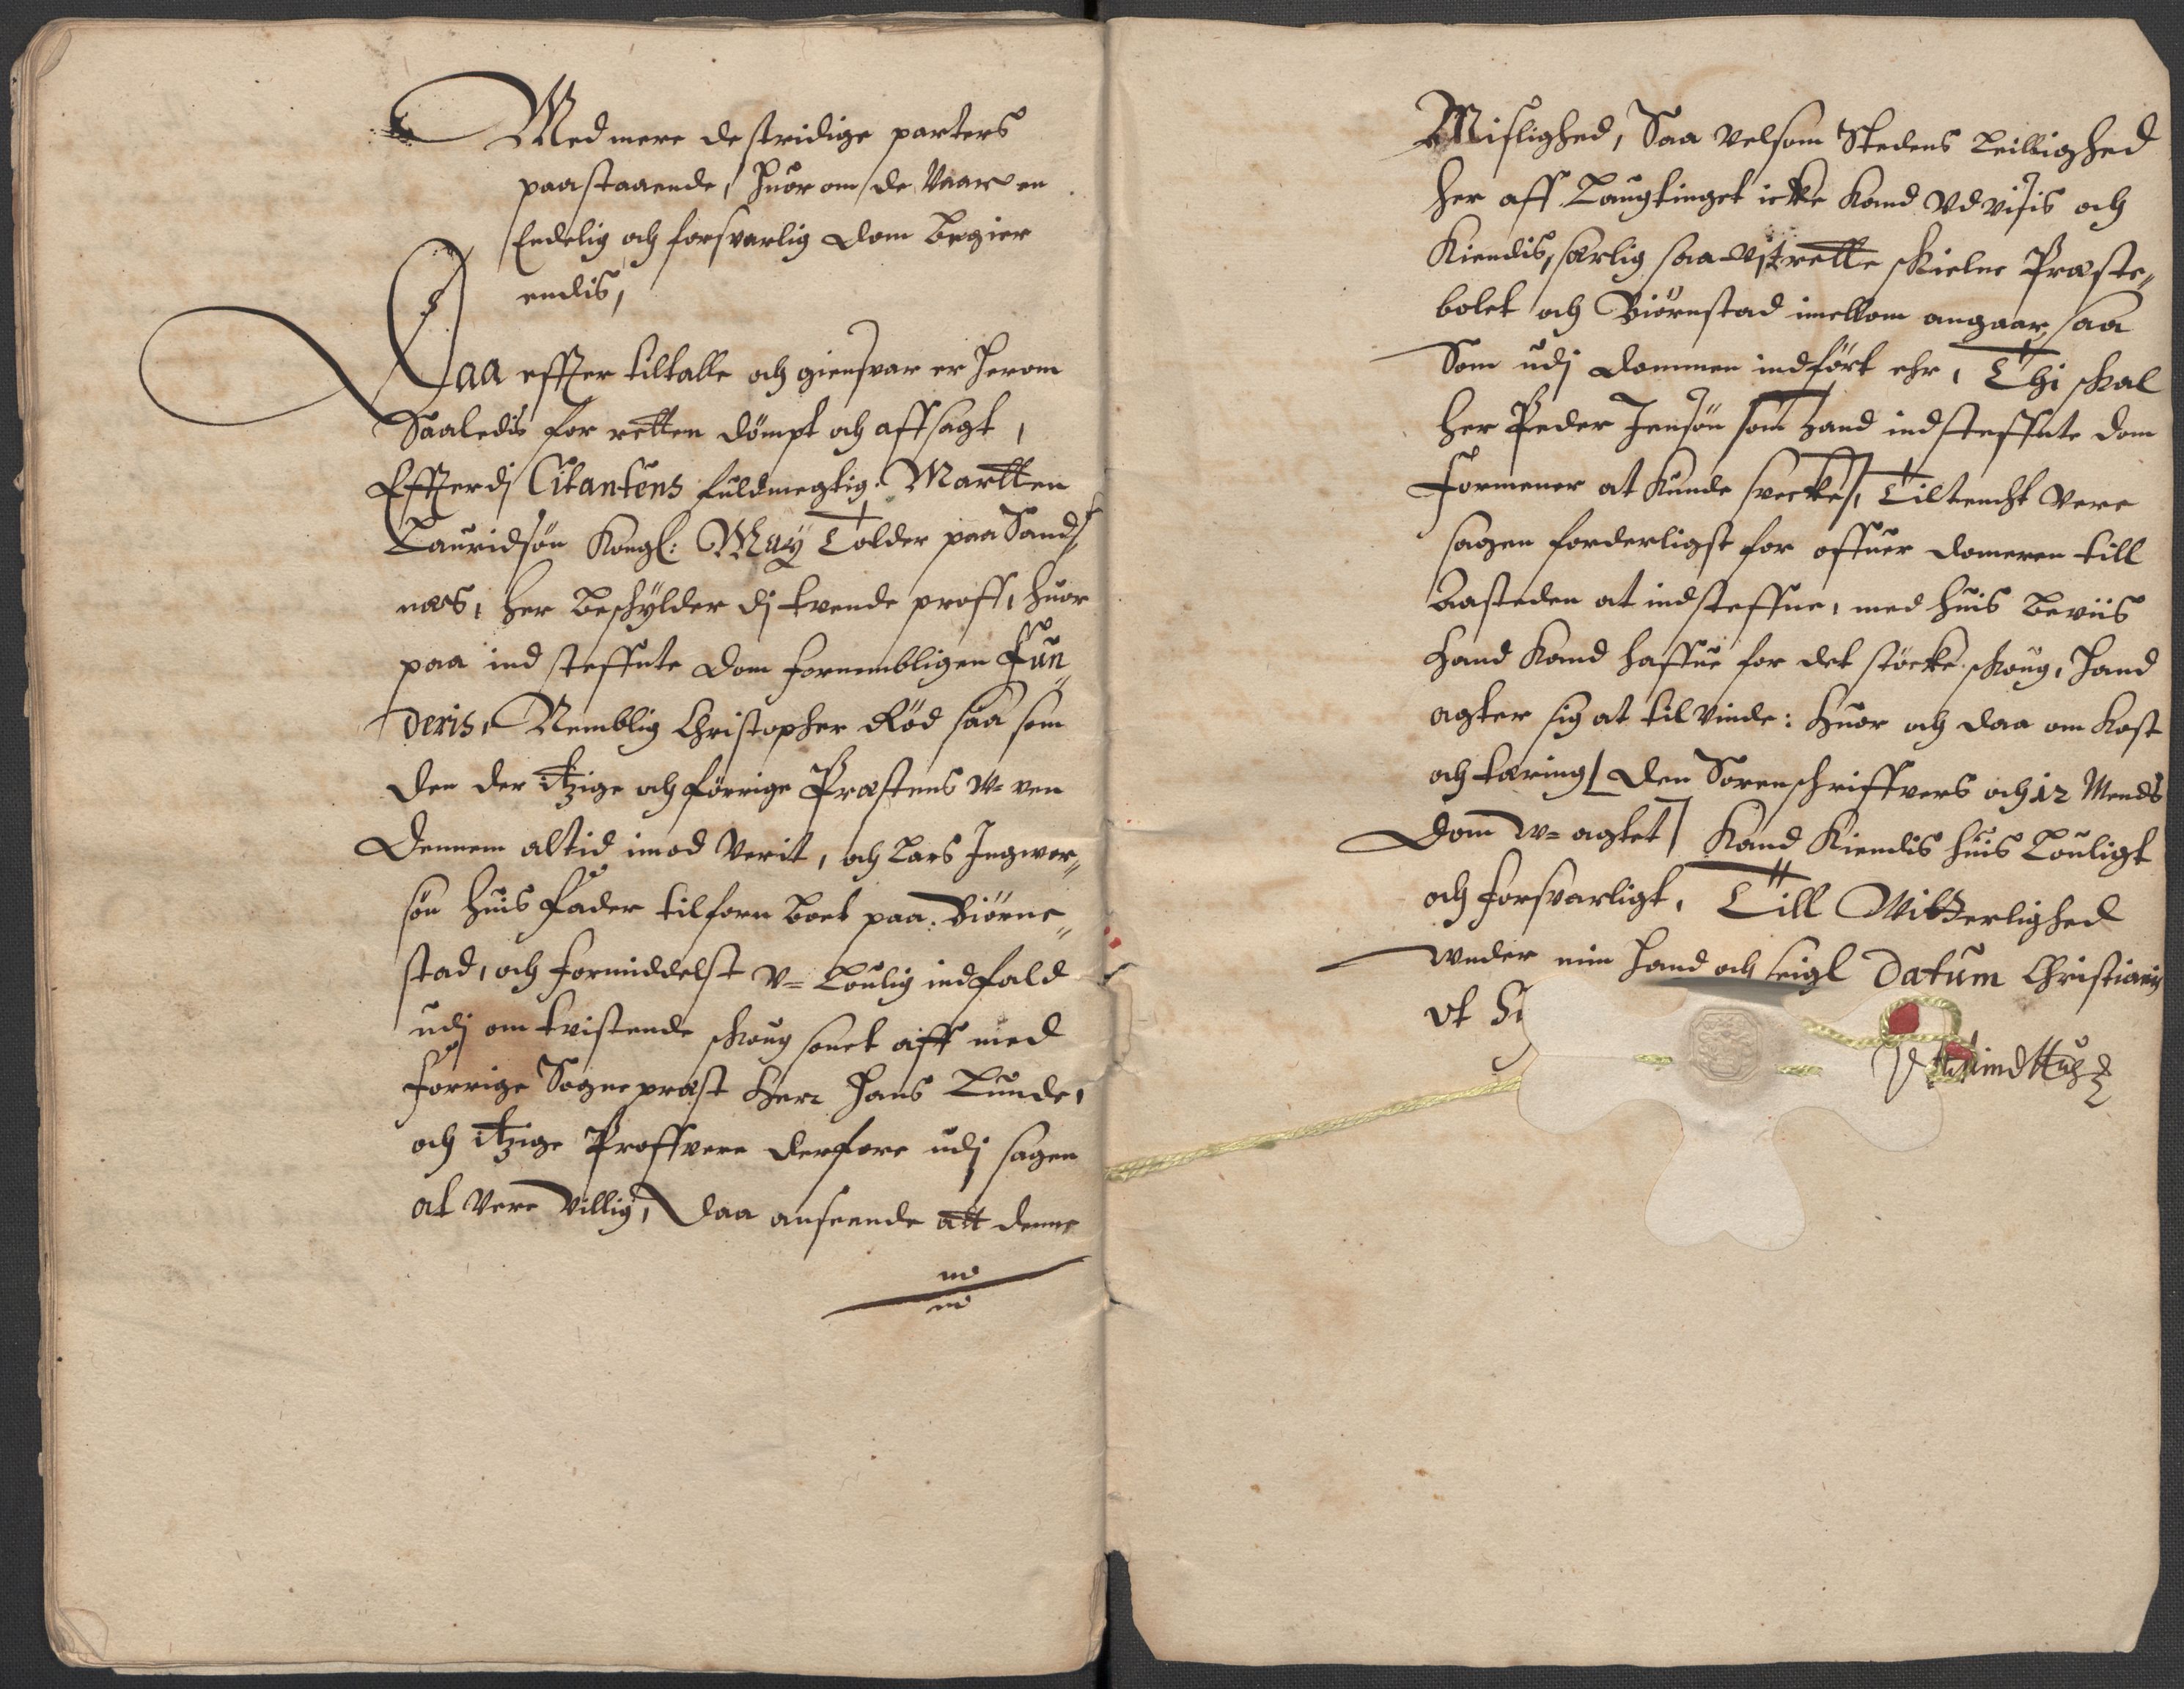 Med mere de stridige parters
paastaaende, Huor om de Vaar en
Endelig och forsvarlig Dom Begier
endis,
Daa effter tiltalle och giensvar er herom
Saaledis for retten dömpt och affsagt,
Effterdj Citantens fuldmegtig Martten
Lauridsön Kongl: May Tolder paa Sand,,
næs, her beschylder dj tvende proff, huor
paa ind steffnte Dom fornembligen Fun,,
deris, Nemblig Christopher Röd saa som
den der itzige och förrige Præstens w= ven
Dennem altid imod Verit, och Lars Ingwor,,
sön huis Fader tilforn boet paa Biörne,,
stad, och formiddelst V= Loulig indfald
udj om tvistende skoug sonet aff med
Forrige Sogneprest Herr Hans Lunde,
och itzige Proffvere derfore udj sagen
at Vere Villig, Daa anseende att denne
Mislighed, Saa velsom Stedens Leilighed
her aff Laugtinget icke Kand Vdvisis och
Kiendis, serlig saa vit rette skielne Præste,,
bolet och Biörnstad imellom angaar, saa
Som udj Dommen indfört ehr, Thi skal
Her Peder Jensön som hand indsteffnte Dom
Formener at Kunde svecke, Tiltencht Vere
sagen forderligst for offuer Domeren till
Aasteden at indsteffne, med huis Beviis
Hand Kand haffue for det stöcke skoug, Hand
agter sig at tilvinde: Huor och daa om Kost
och tæring den Sorenschriffvers och 12 Mends
Dom w= agtet Kand Kiendis huis Louligt
och forsvarligt, Till Witterlighed
under min Hand och seigl Datum Christiania
ut